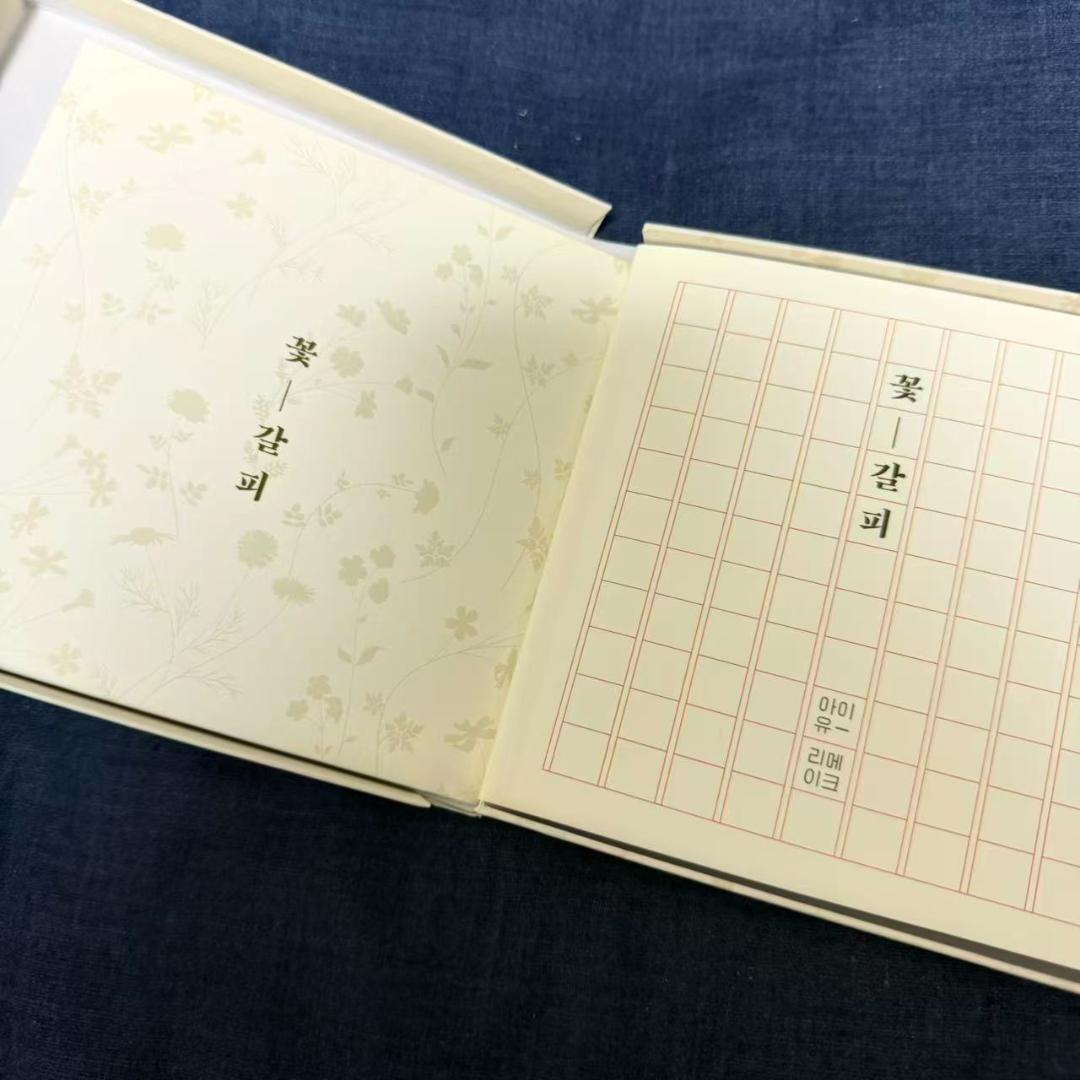 꽃
—
갈
피
꽃
—
갈
피
아이
유—
리메
이크